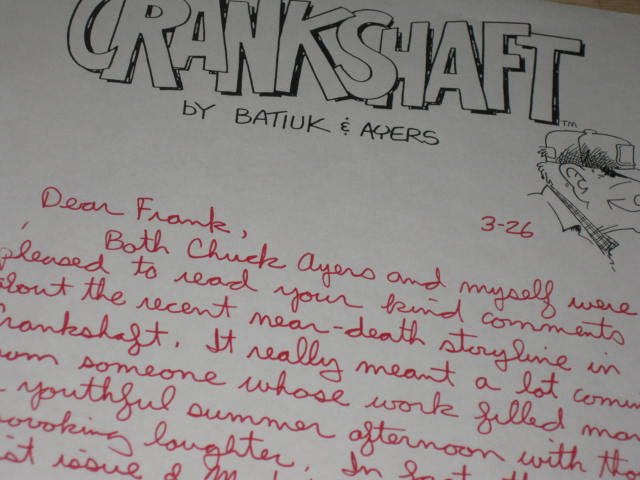 CRANKSHAFT
TM
BY BATIUK & AYERS
3-26
Dear Frank,
Both Chuck Ayers and myself were
pleased to read your kind comments
about the recent near-death storyline in
Crankshaft. It really meant a lot comin
someone whose work filled man
youthful summer afternoon with tho
ovoking laughter. In fact th
issue of